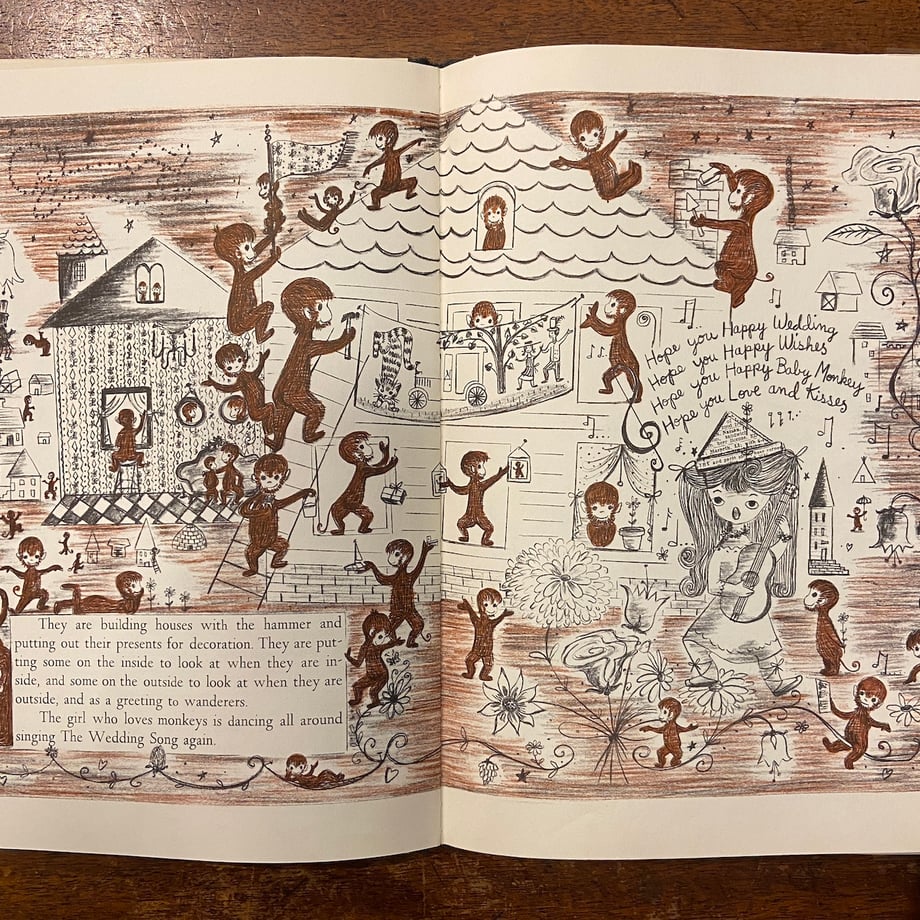 They are building houses with the hammer and
putting out their presents for decoration. They are put-
ting some on the inside to look at when they are in-
side, and some on the outside to look at when they are
outside, and as a greeting to wanderers.
The girl who loves monkeys is dancing all around
singing The Wedding Song again.
Hope you Happy Wedding
Hope you Happy Wishes
Hope you Happy Baby Monkey
Hope you Love and Kisses